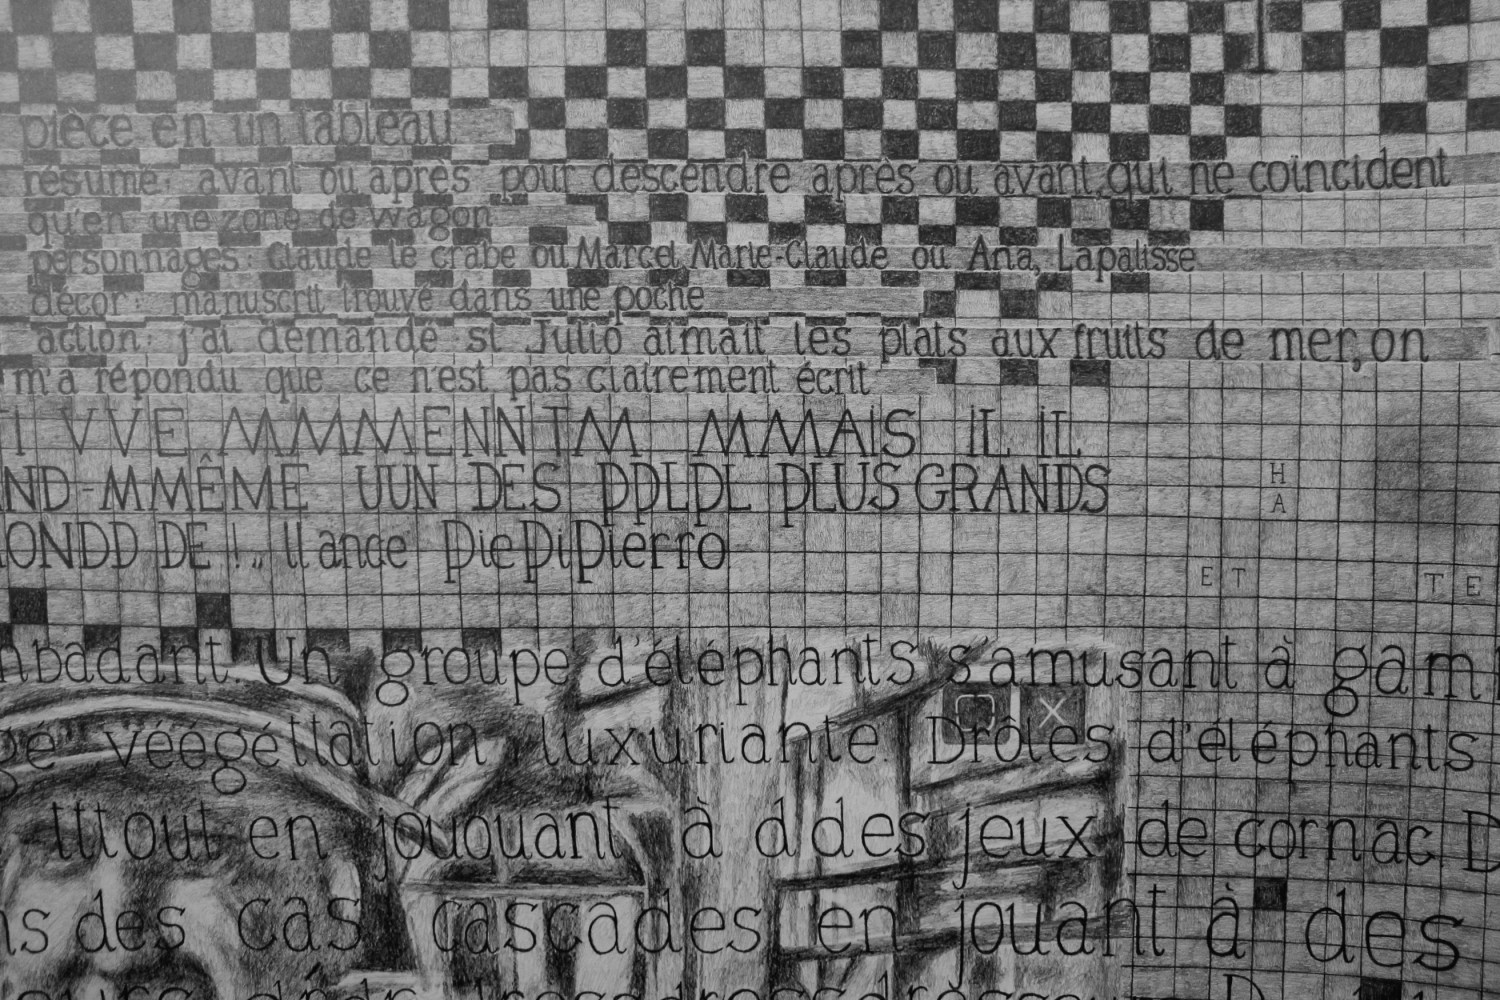 pièce en un tableau
résumé: avant ou après pour descendre après ou avant, qui ne coïncident
qu'en une zone de wagon
personnages: Claude le crabe ou Marcel, Marie-Claude ou Ana, Lapalisse
décor: manuscrit trouvé dans une poche
action: j'ai demandé si Julio aimait les plats aux fruits de mer, on
m'a répondu que ce n'est pas clairement écrit
TI VVE MMMMENNTM MMAIS IL IL
ND-MMÊME UUN DES PPLPL PLUS GRANDS
H
A
ONDD DE !.. ll ance PiePiPierro
ET TE
badant Un groupe d'éléphants s'amusant à gam
gé" véégéttation luxuriante Drôles d'éléphants
tttout en jououant à d des jeux de cornac D
ns des cas cascades en jouant à des